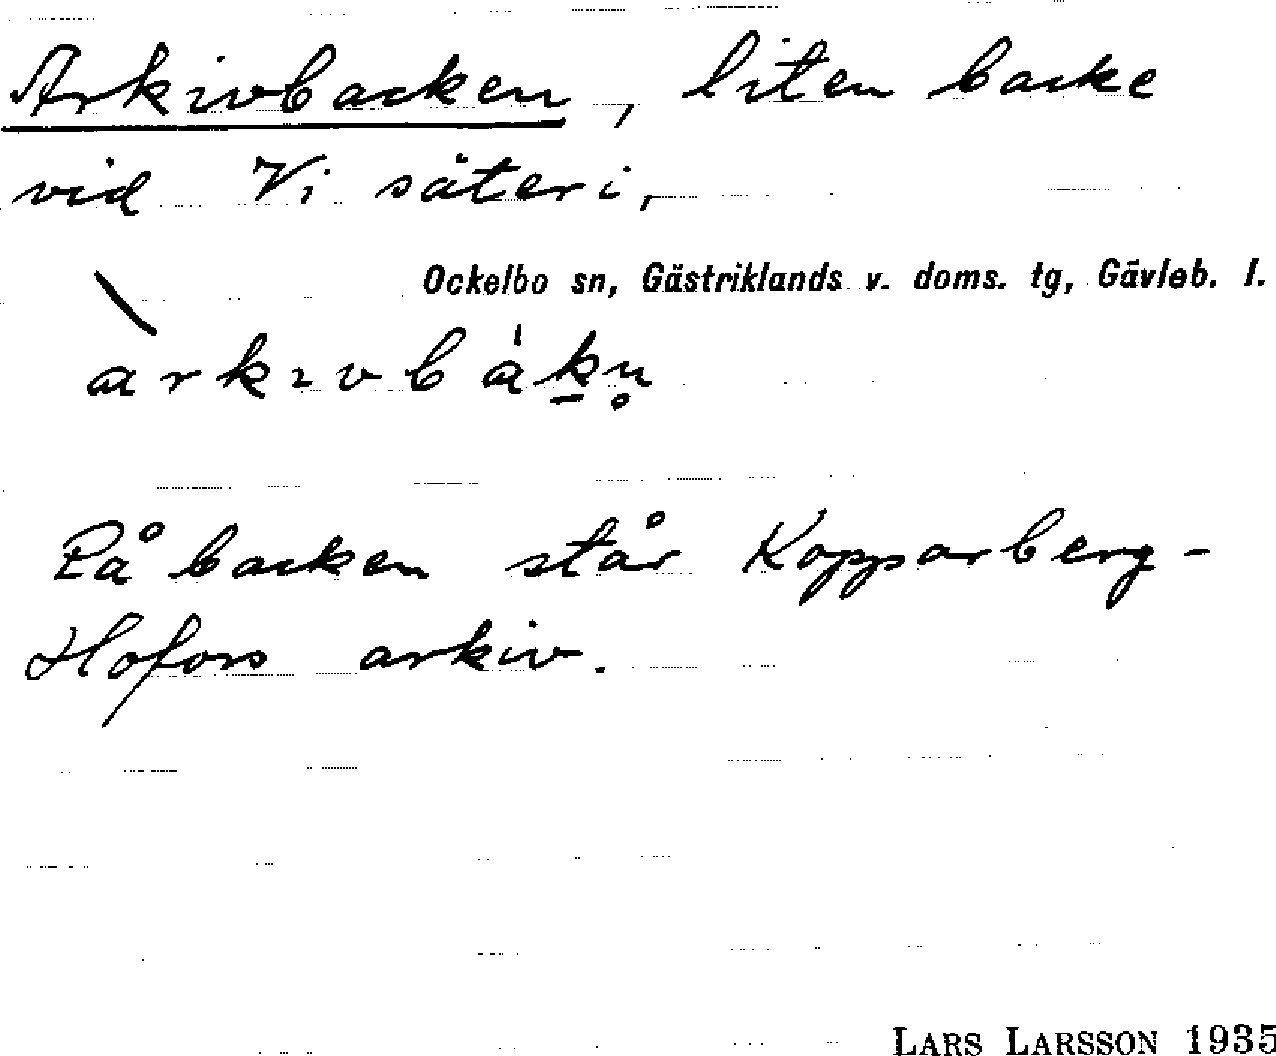 Arkivbacken, liten backe
vid Vi säteri,
Ockelbo sn, Gästriklands v. doms. tg, Gävleb. l.
På backen står Kopparberg-
Hofors arkiv.
LARS LARSSON 1935